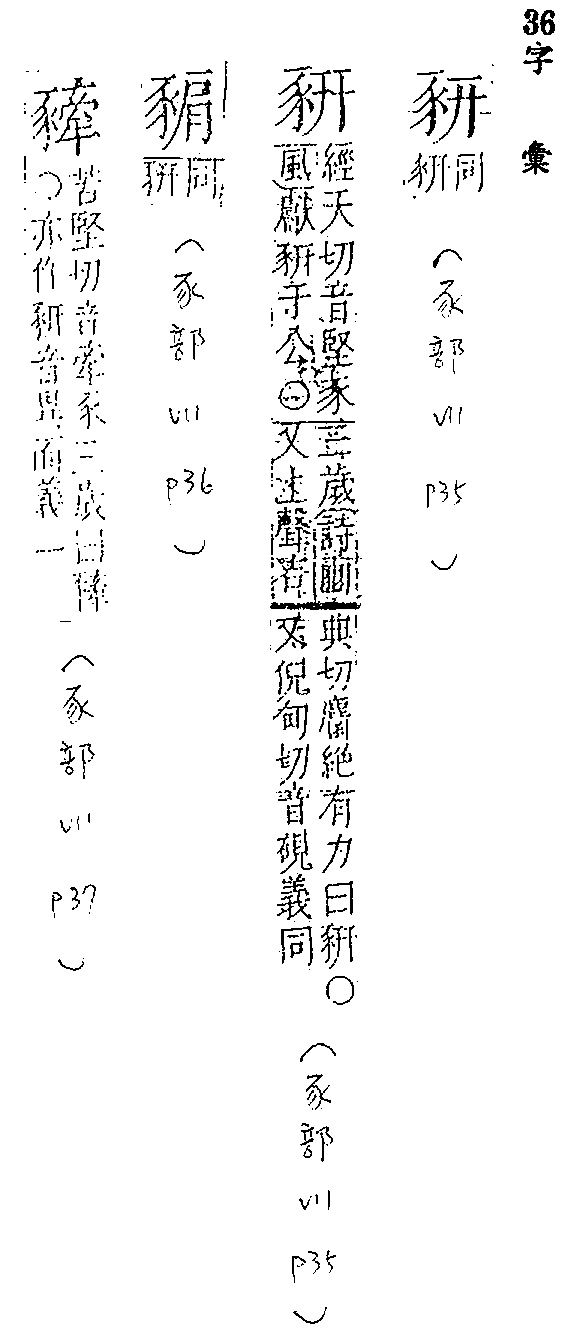 36 字彙
豜
同
豣
（豕部 VII P35）
豣
經天切音堅豕三歲詩豳
風獻豣于公○又上聲吉
典切麕絕有力曰豣○
又倪甸切音硯義同
（豕部 VII P35）
同
豣
（豕部 VII P36）
苦堅切音牽豕三歲曰
○亦作豣音異而義一
（豕部 VII P37）